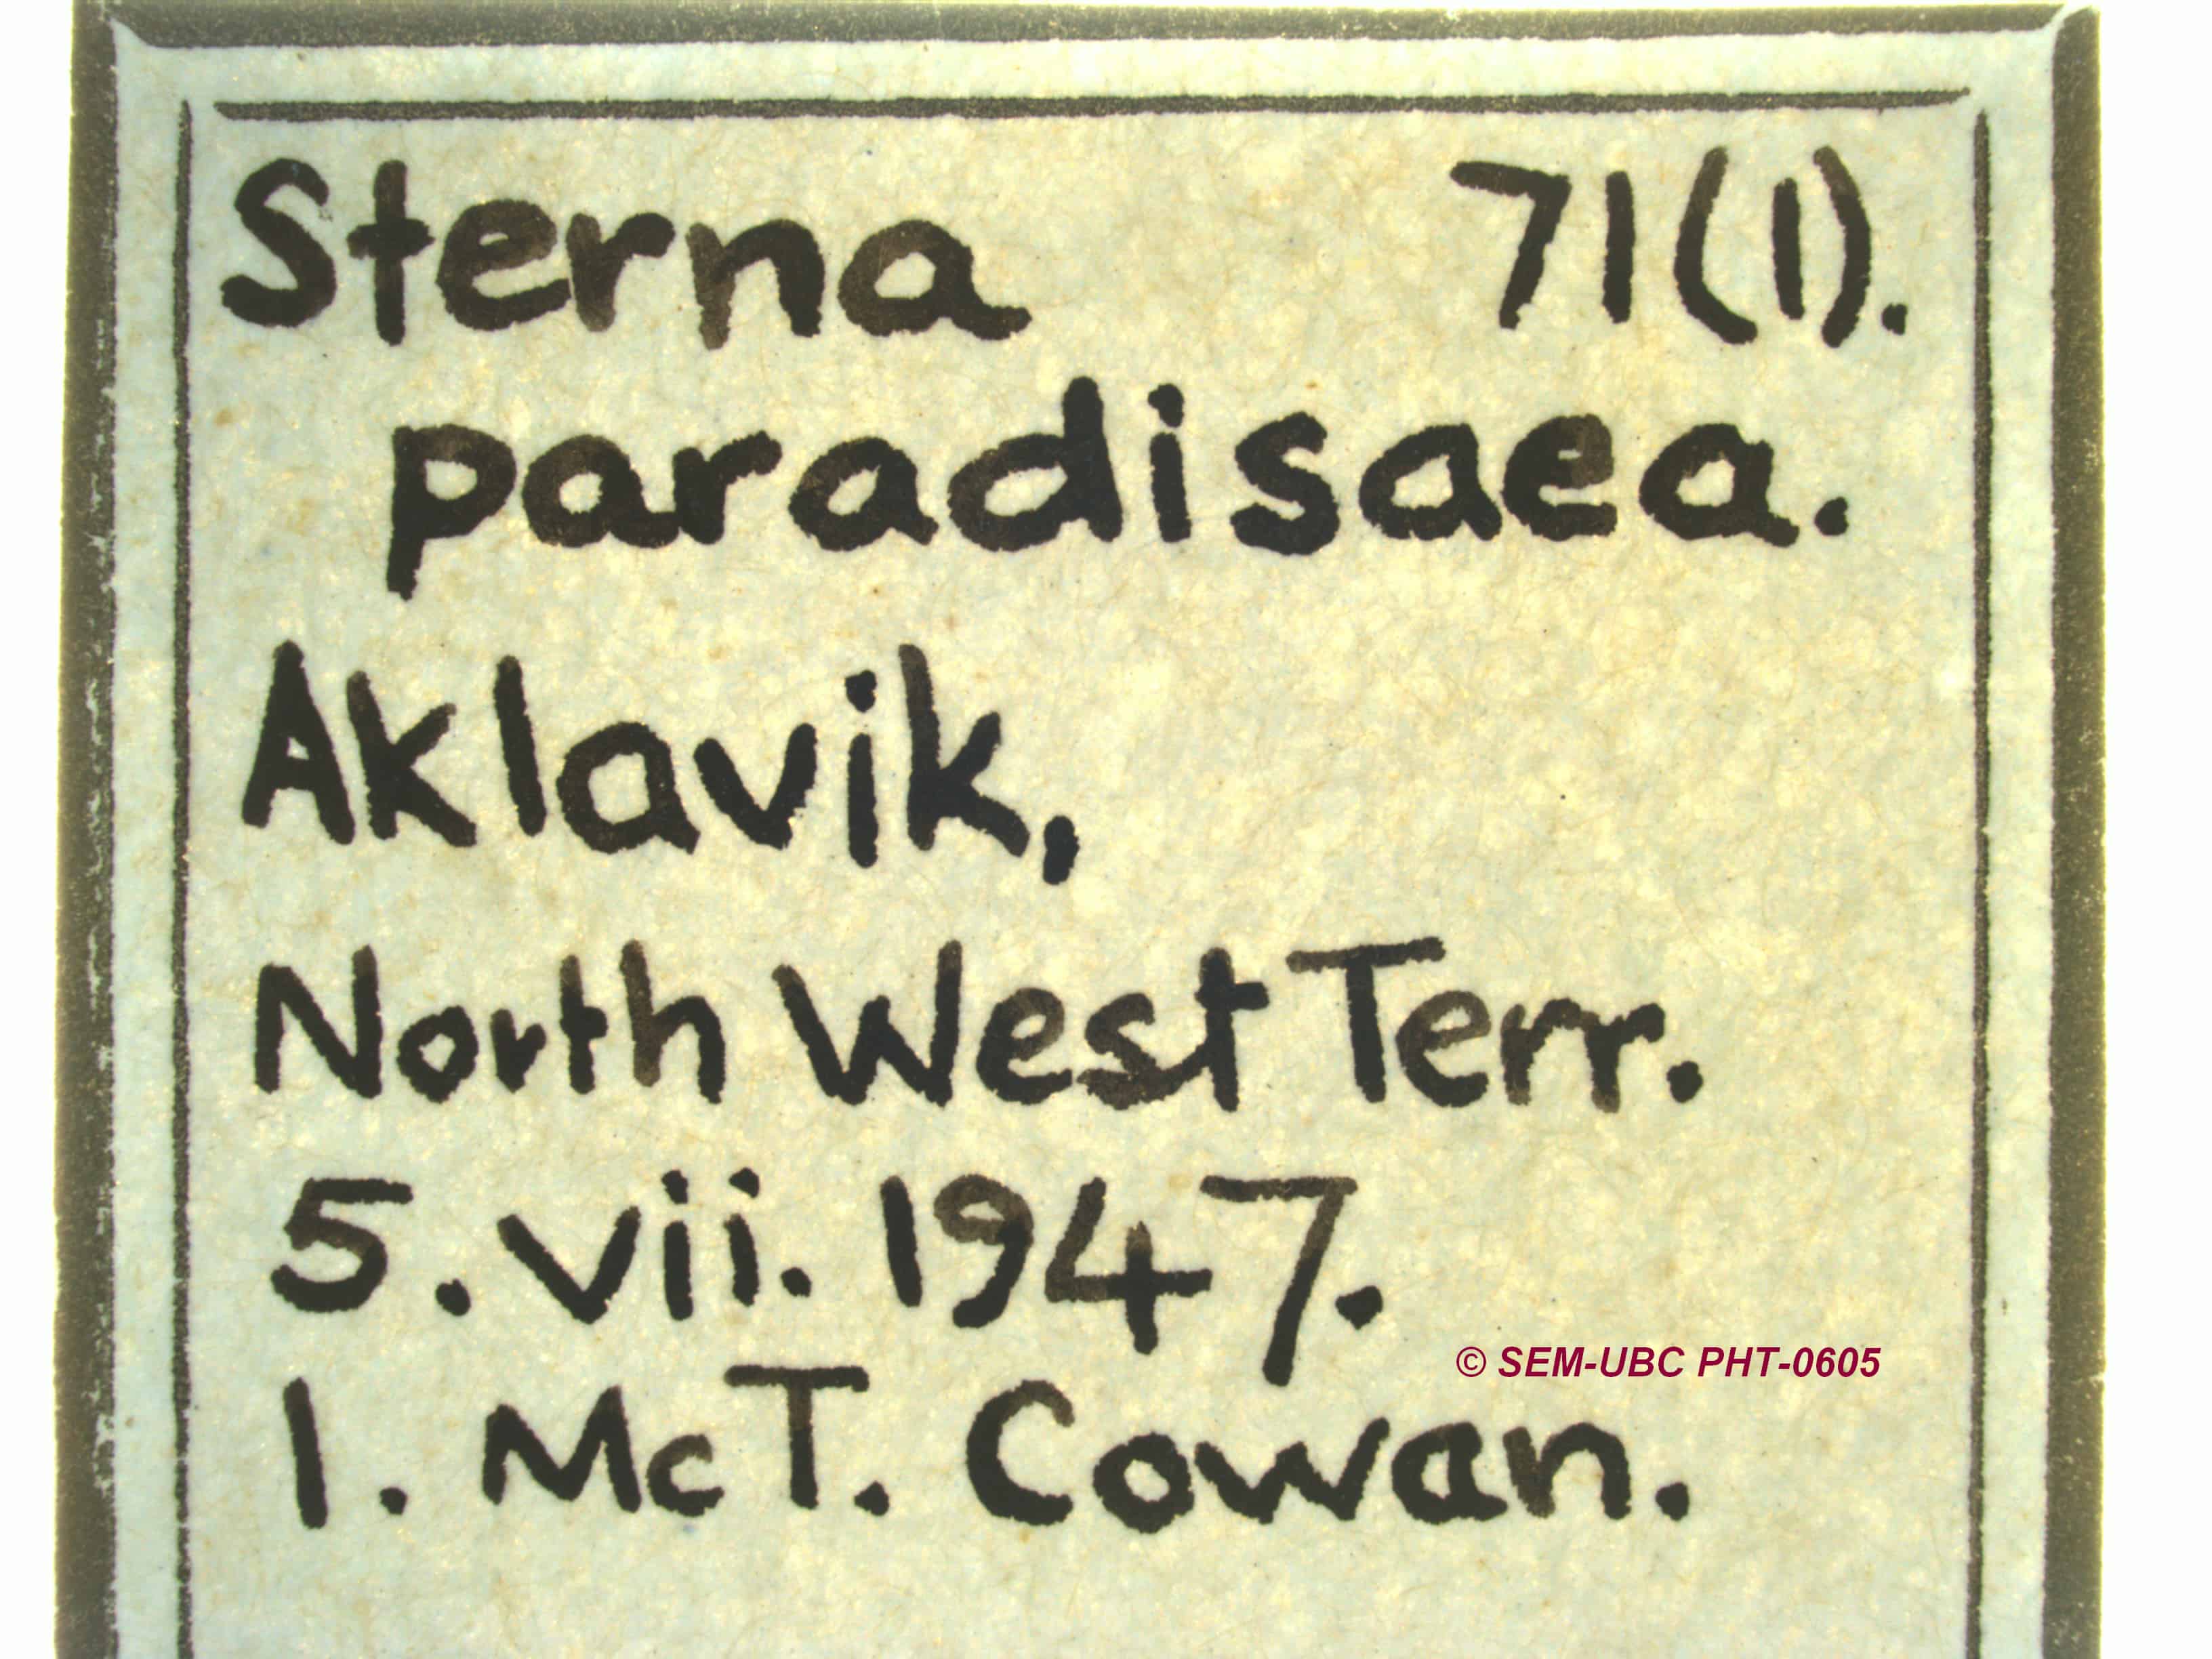 Sterna 71(1).
paradisaea.
Aklavik,
North West Terr.
5. vii. 1947.
© SEM-UBC PHT-0605
I. McT. Cowan.